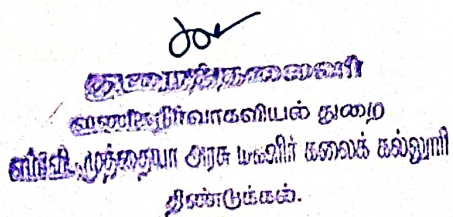 துறைத்தலைவர்
வணிகநிர்வாகவியல் துறை
எம்.வி.முத்தையா அரசு மகளிர் கலைக் கல்லூரி
திண்டுக்கல்.